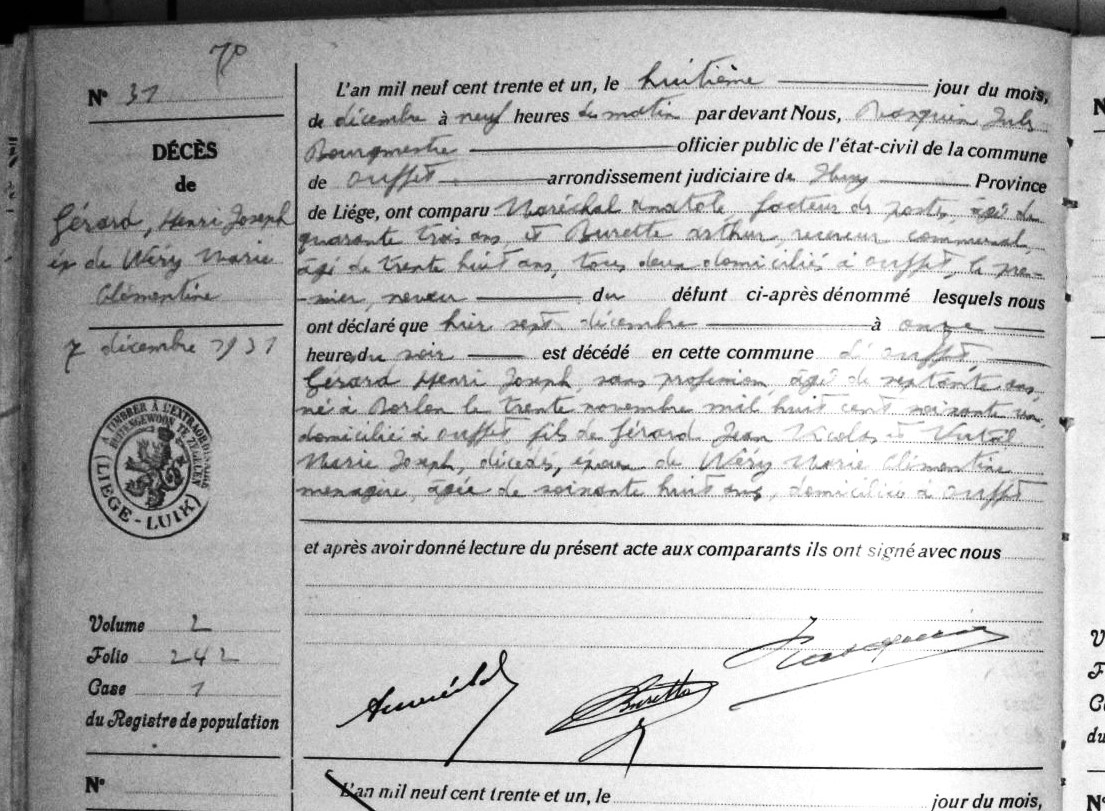 70
N° 31
DÉCÈS
de
Gérard, Henri Joseph
ép de Wéry Marie
Clémentine
7 décembre 1931
TIMBRER À L'EXTRAORDINAIRE
BUITENGEWOON TE ZEGELEN
(LIÈGE - LUIK)
Volume 2
Folio 242
Case 1
du Registre de population
N°
L'an mil neuf cent trente et un, le huitième jour du mois,
de décembre à neuf heures du matin pardevant Nous, Rasquin Jules
Bourgmestre officier public de l'état-civil de la commune
de Ouffet arrondissement judiciaire de Huy Province
de Liége, ont comparu Maréchal Anatole facteur des postes, âgé de
quarante trois ans, et Burette Arthur, receveur communal,
âgé de trente huit ans, tous deux domiciliés à Ouffet, le pre-
-mier, neveu du défunt ci-après dénommé lesquels nous
ont déclaré que hier sept décembre à onze
heures du soir est décédé en cette commune d'Ouffet,
Gérard Henri Joseph, sans profession âgé de septante ans,
né à Borlon le trente novembre mil huit cent soixante un,
domicilié à Ouffet, fils de Gérard Jean Nicolas et
Marie Joseph, décédés, époux de Wéry Marie Clémentine
ménagère, âgée de soixante huit ans, domiciliée à Ouffet
et après avoir donné lecture du présent acte aux comparants ils ont signé avec nous
Burette
L'an mil neuf cent trente et un, le jour du mois,
N
V
F
C
du
N°